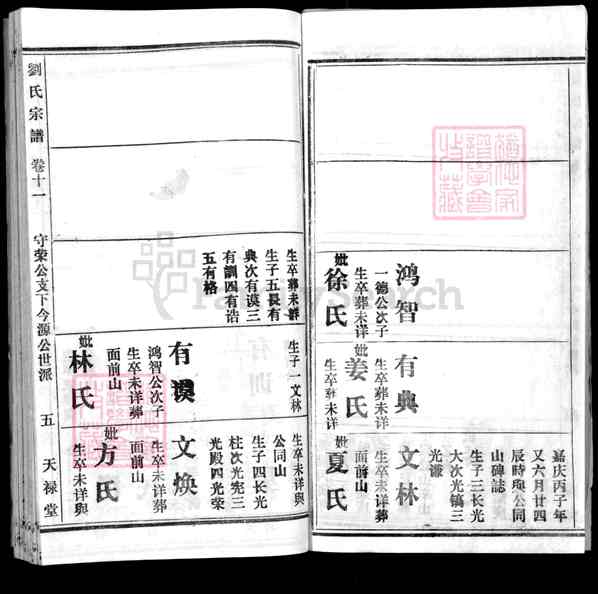 鸿智
一德公次子
生卒葬未详
妣
徐氏
有典
生卒葬未详
妣
姜氏
生卒葬未详
嘉庆丙子年
又六月廿四
辰時與公同
山碑誌
生子三长光
大次光镐三
光谦
文林
生卒未详葬
面前山
妣
夏氏
生卒葬未详
生卒葬未詳
生子五長有
典次有谟三
有訓四有诰
五有格
生子一文林
有谟
鸿智公次子
生卒未详葬
面前山
妣
林氏
生卒未详與
公同山
生子四长光
柱次光宪三
光殿四光荣
文焕
生卒未详葬
面前山
妣
方氏
生卒未详與
劉氏宗譜
卷十一
守荣公支下今源公世派
五
天禄堂
FamilySearch